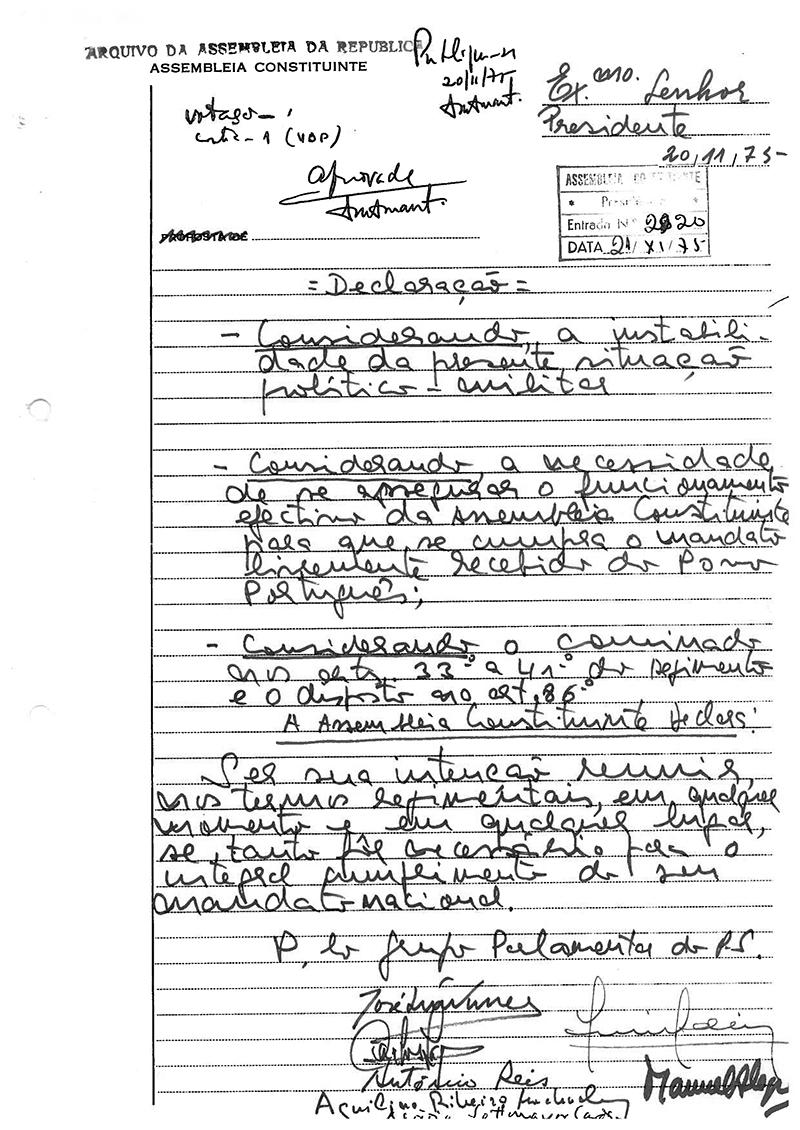 ARQUIVO DA ASSEMBLEIA DA REPUBLICA
ASSEMBLEIA CONSTITUINTE
Publique-se
20/11/75
votação
contra - 1 (UDP)
Aprovada
Ex.mo. Senhor
Presidente
20,11,75-
ASSEMBLEIA CONSTITUINTE
* Presidência *
Entrada N.º 2820
DATA 21/XI/75
PROPOSTA DE
= Declaração =
- Considerando, a instabili-
dade da presente situação
político-militar
- Considerando, a necessidade
de se assegurar o funcionamento
efectivo da Assembleia Constituinte
para que se cumpra o mandato
livremente recebido do Povo
Português;
- Considerando o cominado
nos arts. 33º a 41º do regimento
e o disposto no art. 86º
A Assembleia Constituinte declara:
Ser sua intenção reunir,
nos termos regimentais, em qualquer
momento e em qualquer lugar,
se tanto fôr necessário, para o
integral cumprimento do seu
mandato nacional.
P, lo Grupo Parlamentar do P.S.
José Luís Nunes
António Reis
Manuel Alegre
Aquilino Ribeiro Machado